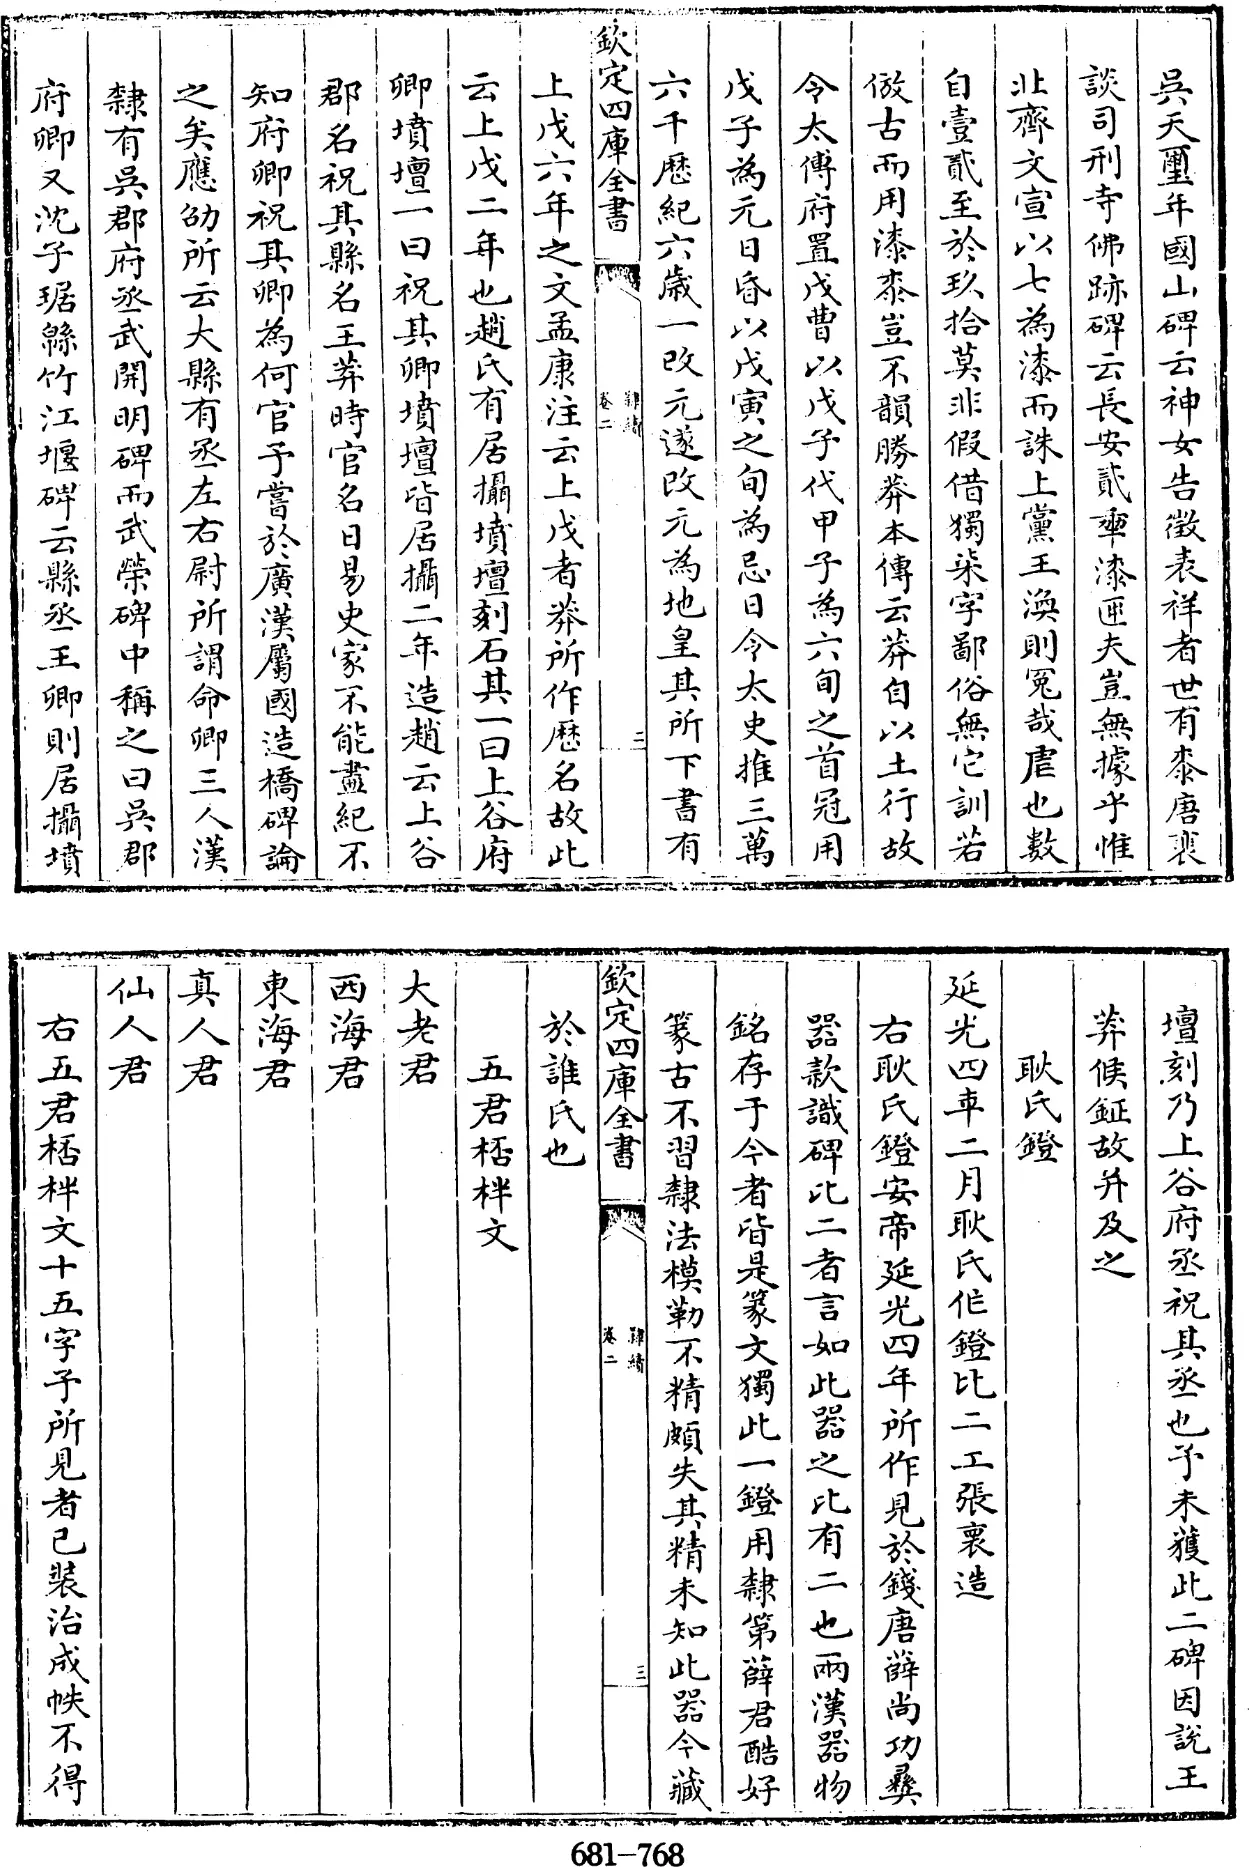 吳天璽年國山碑云神女告徵表祥者世有桼唐裴
談司刑寺佛跡碑云長安貳秊漆匝夫豈無據乎惟
北齊文宣以七為漆而誅上黨王渙則冤哉虐也數
自壹貳至於玖拾莫非假借獨柒字鄙俗無它訓若
倣古而用漆桼豈不韻勝莽本傳云莽自以土行故
令太傅府置戊曹以戊子代甲子為六旬之首冠用
戊子為元日昏以戊寅之旬為忌日令太史推三萬
六千歷紀六歲一改元遂改元為地皇其所下書有
欽定四庫全書
隸續
卷二
二
上戊六年之文孟康注云上戊者莽所作歷名故此
云上戊二年也趙氏有居攝墳壇刻石其一曰上谷府
卿墳壇一曰祝其卿墳壇皆居攝二年造趙云上谷
郡名祝其縣名王莽時官名日易史家不能盡紀不
知府卿祝其卿為何官予嘗於廣漢屬國造橋碑論
之矣應劭所云大縣有丞左右尉所謂命卿三人漢
隸有吳郡府丞武開明碑而武榮碑中稱之曰吳郡
府卿又沈子琚緜竹江堰碑云縣丞王卿則居攝墳
壇刻乃上谷府丞祝其丞也予未獲此二碑因說王
莽候鉦故并及之
耿氏鐙
延光四年二月耿氏作鐙比二工張襄造
右耿氏鐙安帝延光四年所作見於錢唐薛尚功彝
器款識碑比二者言如此器之比有二也兩漢器物
銘存于今者皆是篆文獨此一鐙用隸第薛君酷好
篆古不習隸法模勒不精頗失其精未知此器今藏
欽定四庫全書
隸續
卷二
三
於誰氏也
五君桮柈文
大老君
西海君
東海君
真人君
仙人君
右五君桮柈文十五字予所見者已裝治成帙不得
681-768